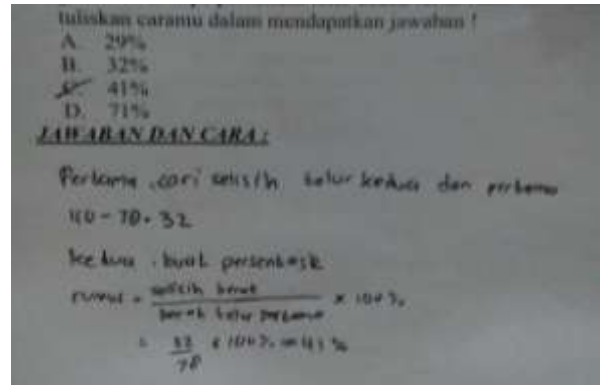 tuliskan caramu dalam mendapatkan jawaban !
A. 29%
B. 32%
C. 41%
D. 71%
JAWABAN DAN CARA :
Pertama . cari selisih telur kedua dan pertama
110 - 78 = 32
kedua . buat persentase
rumus = selisih berat / berat telur pertama × 100%
= 32 / 78 × 100% = 41%